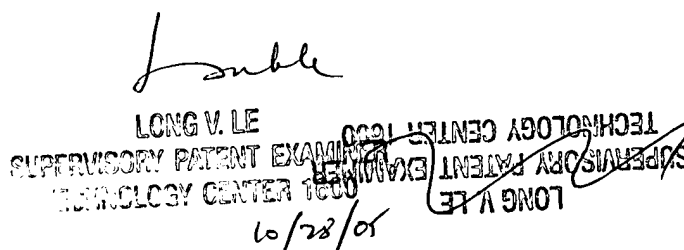 LONG V. LE
SUPERVISORY PATENT EXAMINER
TECHNOLOGY CENTER 1600
10/28/05
SUPERVISORY PATENT EXAMINER
TECHNOLOGY CENTER 1600
LONG V. LE